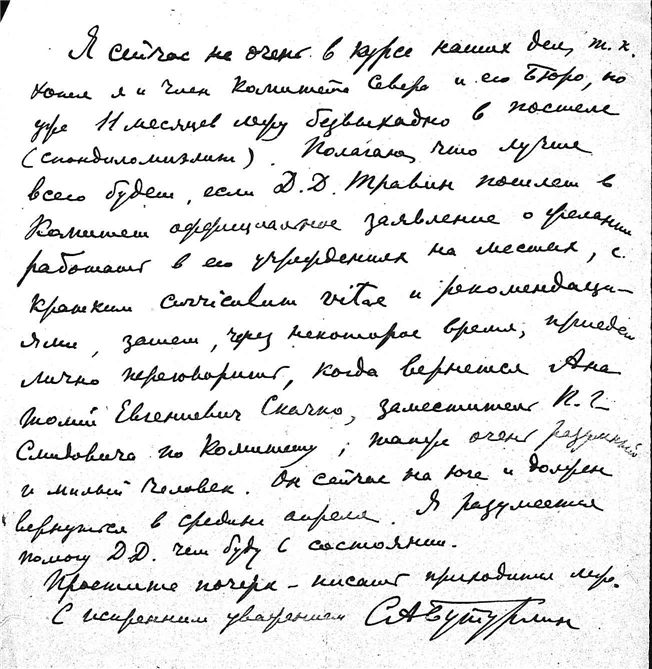 Я сейчас не очень в курсе наших дел, т.к.
хотя я и член Комитета Севера и его Бюро, но
уже 11 месяцев лежу безвыходно в постели
(спондиломиэлит). Полагаю, что лучше
всего будет, если Д.Д. Травин пошлет в
Комитет оффициальное заявление о желании
работать в его учреждениях на местах, с
кратким curriculum vitae и рекомендаци-
ями, затем, через некоторое время, приедет
лично переговорить, когда вернется Ана
толий Евгениевич Скачко, заместитель П.Г.
Смидовича по Комитету; также очень разумный
и милый человек. Он сейчас на юге и должен
вернуться в средине апреля. Я разумеется
помогу Д.Д. чем буду в состоянии.
Простите почерк – писать приходится лежа.
С искренним уважением С.А. Бутурлин